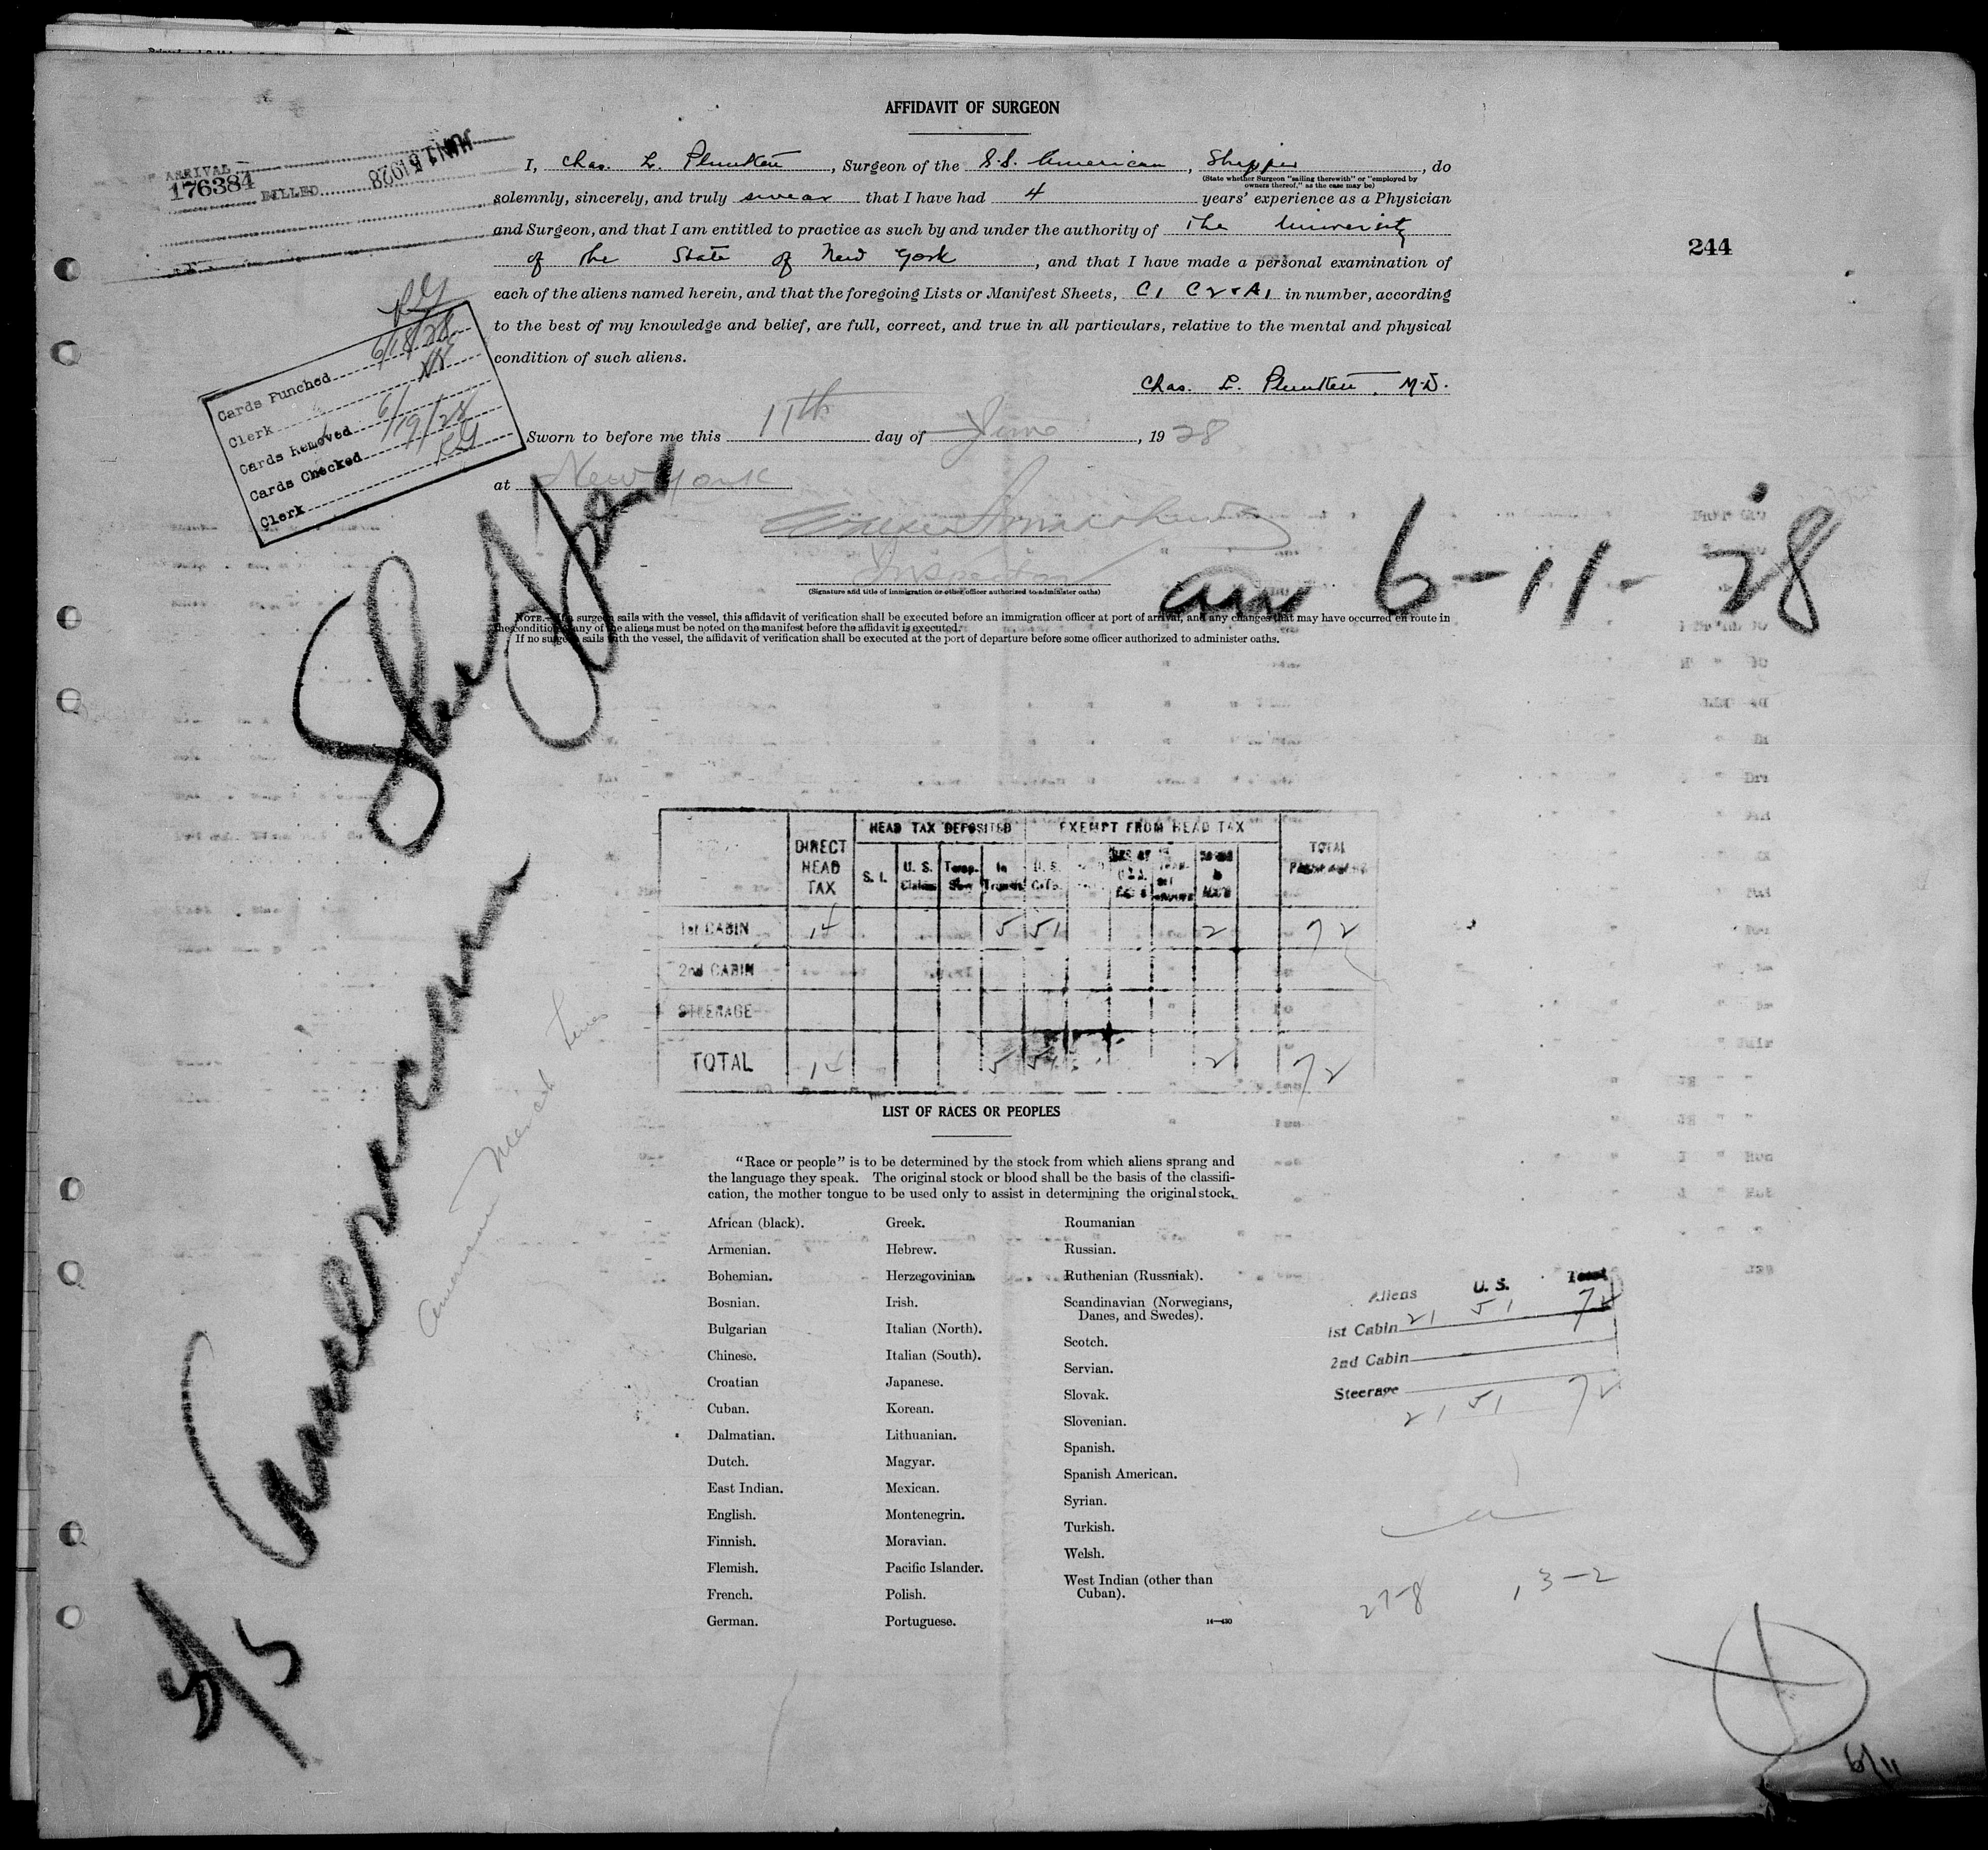 AFFIDAVIT OF SURGEON
ARRIVAL
176384 BILLED JUN 15 1928
I, Chas. L. Plunkett, Surgeon of the S.S. American, Shipper, do
(State whether Surgeon "sailing therewith" or "employed by
owners thereof," as the case may be)
solemnly, sincerely, and truly swear that I have had 4 years' experience as a Physician
and Surgeon, and that I am entitled to practice as such by and under the authority of The University
of the State of New York, and that I have made a personal examination of
each of the aliens named herein, and that the foregoing Lists or Manifest Sheets, C1 C2 & A1 in number, according
to the best of my knowledge and belief, are full, correct, and true in all particulars, relative to the mental and physical
condition of such aliens.
Chas. L. Plunkett, M.D.
244
Cards Punched 6/18/28
Clerk
Cards Removed
Cards Checked 6/19/28
Clerk
Sworn to before me this 11th day of June, 1928
at New York
Inspector
(Signature and title of immigration or other officer authorized to administer oaths)
6-11-28
NOTE.—If a surgeon sails with the vessel, this affidavit of verification shall be executed before an immigration officer at port of arrival, and any changes that may have occurred en route in
the condition of any of the aliens must be noted on the manifest before the affidavit is executed.
If no surgeon sails with the vessel, the affidavit of verification shall be executed at the port of departure before some officer authorized to administer oaths.
S/S American Shipper
American Merch Lines
HEAD TAX DEPOSITED EXEMPT FROM HEAD TAX
DIRECT HEAD TAX S. I. U. S. Claims Temp. Stay In Transit U. S. Citz. TOTAL PASSENGERS
1st CABIN 14 5 51 2 72
2nd CABIN
STEERAGE
TOTAL 14 5 51 2 72
LIST OF RACES OR PEOPLES
"Race or people" is to be determined by the stock from which aliens sprang and
the language they speak. The original stock or blood shall be the basis of the classifi-
cation, the mother tongue to be used only to assist in determining the original stock.
African (black).
Armenian.
Bohemian.
Bosnian.
Bulgarian
Chinese.
Croatian
Cuban.
Dalmatian.
Dutch.
East Indian.
English.
Finnish.
Flemish.
French.
German.
Greek.
Hebrew.
Herzegovinian.
Irish.
Italian (North).
Italian (South).
Japanese.
Korean.
Lithuanian.
Magyar.
Mexican.
Montenegrin.
Moravian.
Pacific Islander.
Polish.
Portuguese.
Roumanian
Russian.
Ruthenian (Russniak).
Scandinavian (Norwegians,
Danes, and Swedes).
Scotch.
Servian.
Slovak.
Slovenian.
Spanish.
Spanish American.
Syrian.
Turkish.
Welsh.
West Indian (other than
Cuban).
14—430
Aliens U. S. Total
1st Cabin 21 51 72
2nd Cabin
Steerage
21 51 72
27-8 13-2
6/11